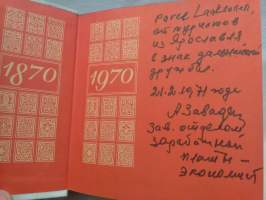 1870
1970
от туристов
из Ярославля
в знак дальнейшей
дружбы.
21.2.1971 года
Зав. отделом
Заработной
платы –
экономист